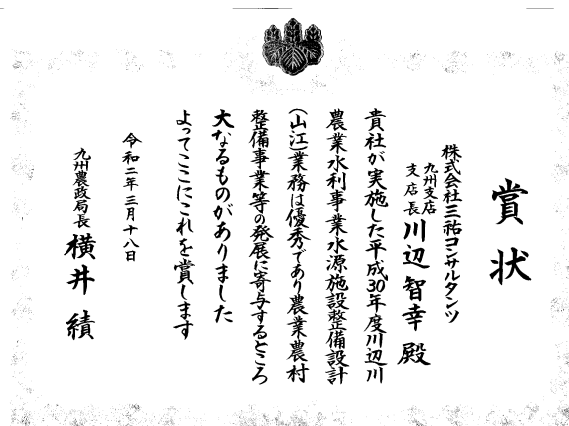 賞状
株式会社三祐コンサルタンツ
九州支店
支店長 川辺智幸 殿
貴社が実施した平成30年度川辺川
農業水利事業水源施設整備設計
(山江)業務は優秀であり農業農村
整備事業等の発展に寄与するところ
大なるものがありました
よってここにこれを賞します
令和二年三月十八日
九州農政局長 横井績